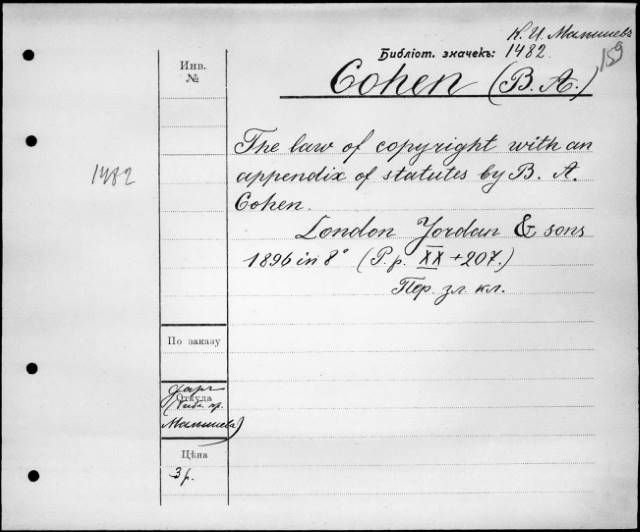 К. И. Малышевъ
Библіот. значекъ: 1482
159
Cohen (B. A.)
Инв.
№
The law of copyright with an
appendix of statutes by B. A.
Cohen.
1482
London Jordan & sons
1896 in 8° (P.p. XX + 207.)
Пер. зл. кл.
По заказу
Откуда
Малышева)
Цѣна
3 р.